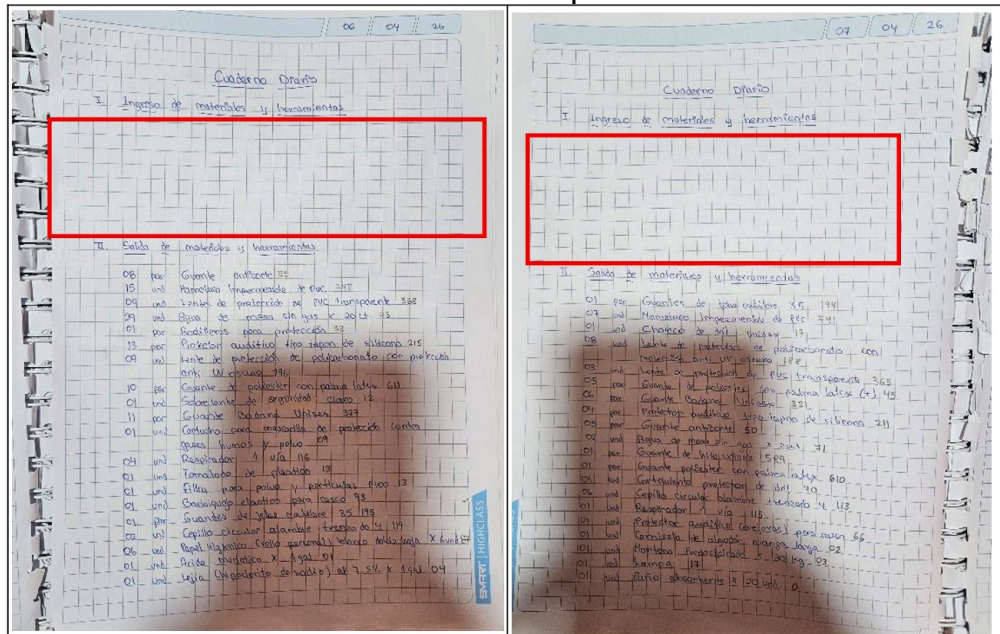 06 04 26
Cuaderno Diario
I. Ingreso de materiales y herramientas
II. Salida de materiales y herramientas
08 par Guante anticorte 55
15 und Mameluco Impermeable de Pvc. 748
09 und Lente de protección de PVC transparente 368
09 und Agua de mesa sin gas x 20 lt 73
01 par Rodilleras para protección 33
13 par Protector auditivo tipo tapon de silicona 215
09 und Lente de protección de policarbonato con protección
anti UV oscuro 196
10 par Guante de poliester con palma latex 611
01 und Sobrelente de seguridad claro 12
11 par Guante Badana Unisex 327
01 und Cartucho para mascarilla de protección contra
gases humos y polvo 09
04 und Respirador 1 vía 116
01 und Tomatodo de plastico 13
01 und Filtro para polvo y partículas P100 13
01 und Barbiquejo elastico para casco 98
01 par Guantes de jebe calibre 35 195
02 und Cepillo circular alambre trenzado 4 114
06 und Papel higienico (rollo personal) blanco doble hoja x 6und
01 und Acido muriatico x 1gal 01
01 und Lejia (hipoclorito de sodio) al 7.5% x 1gal 04
SMART | HIGHCLASS
07 04 26
Cuaderno Diario
I. Ingreso de materiales y herramientas
II. Salida de materiales y herramientas
01 par Guantes de jebe calibre 35 194
07 und Mameluco Impermeable de PVC 741
01 und Chaleco de dril unisex 17
08 und Lente de protección de policarbonato con
protección anti UV oscuro 188
03 und Lente de protección de PVC transparente 365
05 par Guante de poliester con palma latex (+) 45
06 par Guante Badana Unisex 321
04 par Protector auditivo tipo tapon de silicona 211
05 par Guante anticorte 50
02 und Agua de mesa sin gas x 20lt 71
01 par Guante de hilo unisex 589
01 par Guante poliester con palma latex 610
01 und Cortaviento protector de dril 70
06 und Cepillo circular alambre trenzado 4 113
01 und Respirador 1 vía 115
01 und Protector auditivo (orejeras) para casco 66
01 und Camisola de algodón manga larga 02
01 und Mortero Predosificado x 30 kg 03
01 und Lampa 17
01 und Paño absorbente x 20 und